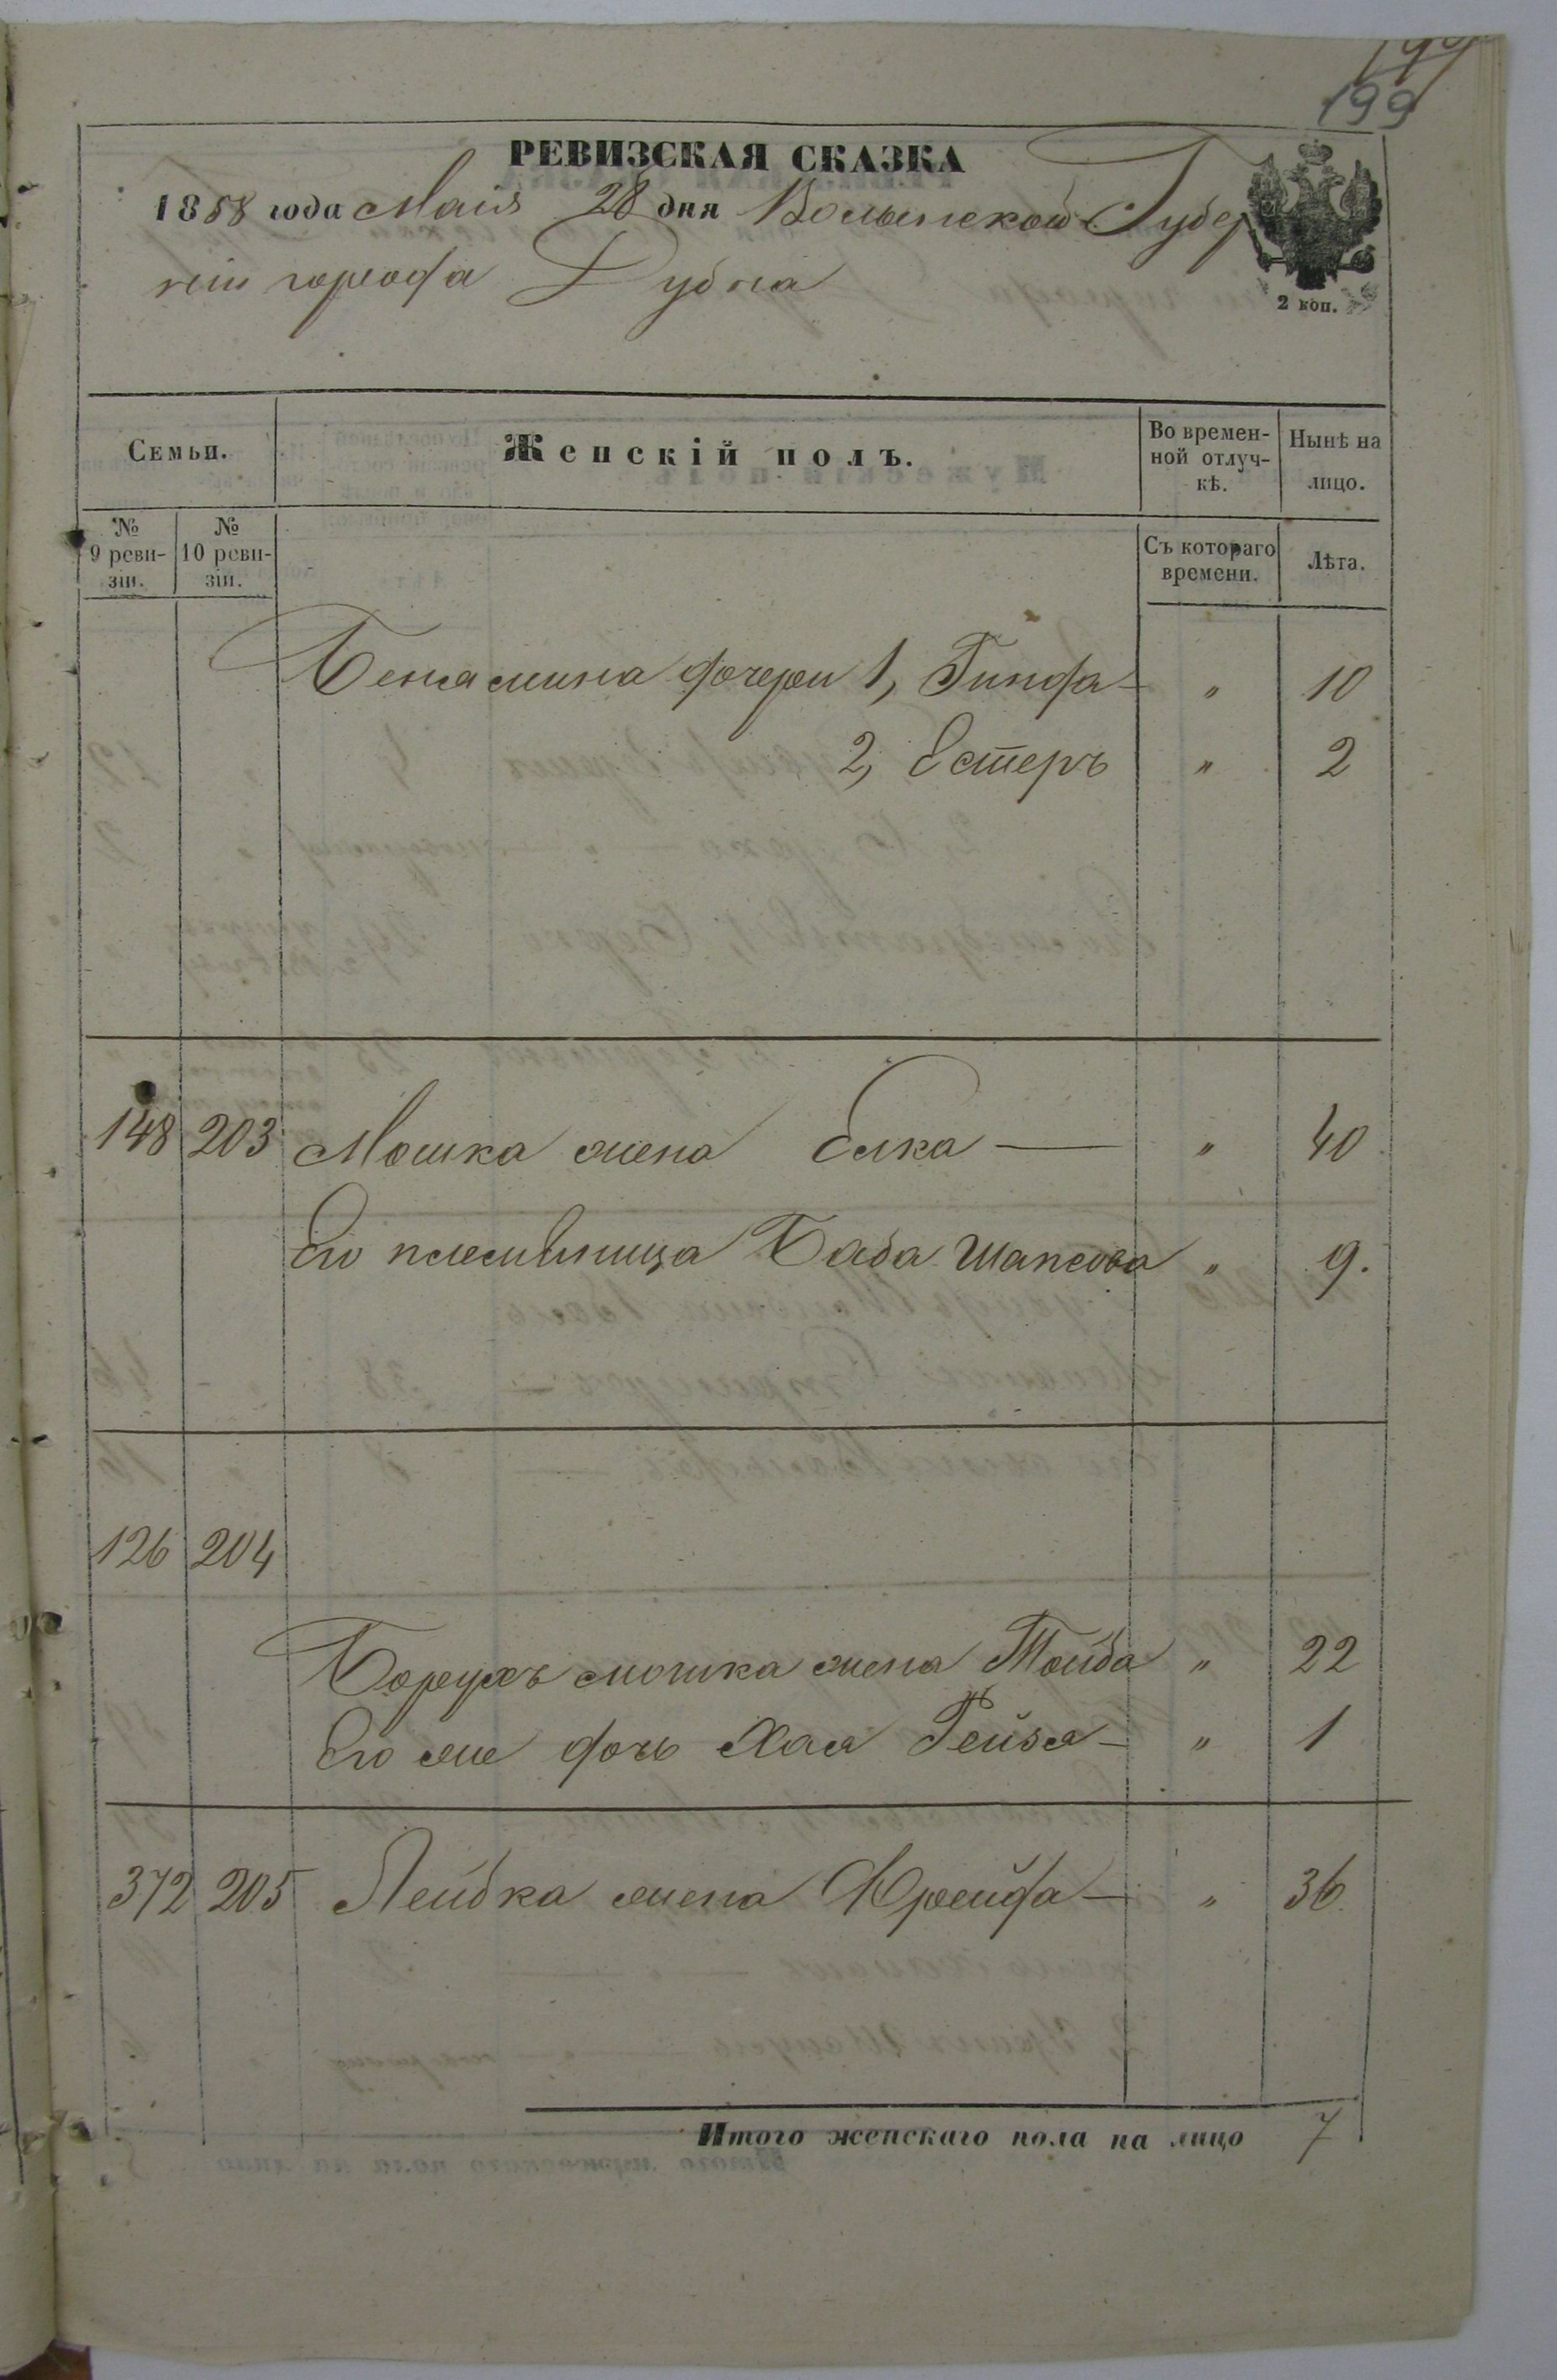 199
199
РЕВИЗСКАЯ СКАЗКА
1858 года Маія 28 дня Волынской Губер
ніи города Дубна
2 коп.
Семьи.
Женскій полъ.
Во времен-
ной отлуч-
кѣ.
Нынѣ на
лицо.
№
9 реви-
зіи.
№
10 реви-
зіи.
Съ котораго
времени.
Лѣта.
Бенямина дочери 1, Гинда — " 10
2, Естеръ " 2
148 203 Мошка жена Елка — " 40
Его племѣнница Баба Шапсова " 9.
126 204
Борухъ мошка жена Тойба " 22
Его же дочь Хая Рейзя — " 1
372 205 Лейбка жена Фрейда — " 36
Итого женскаго пола на лицо 7